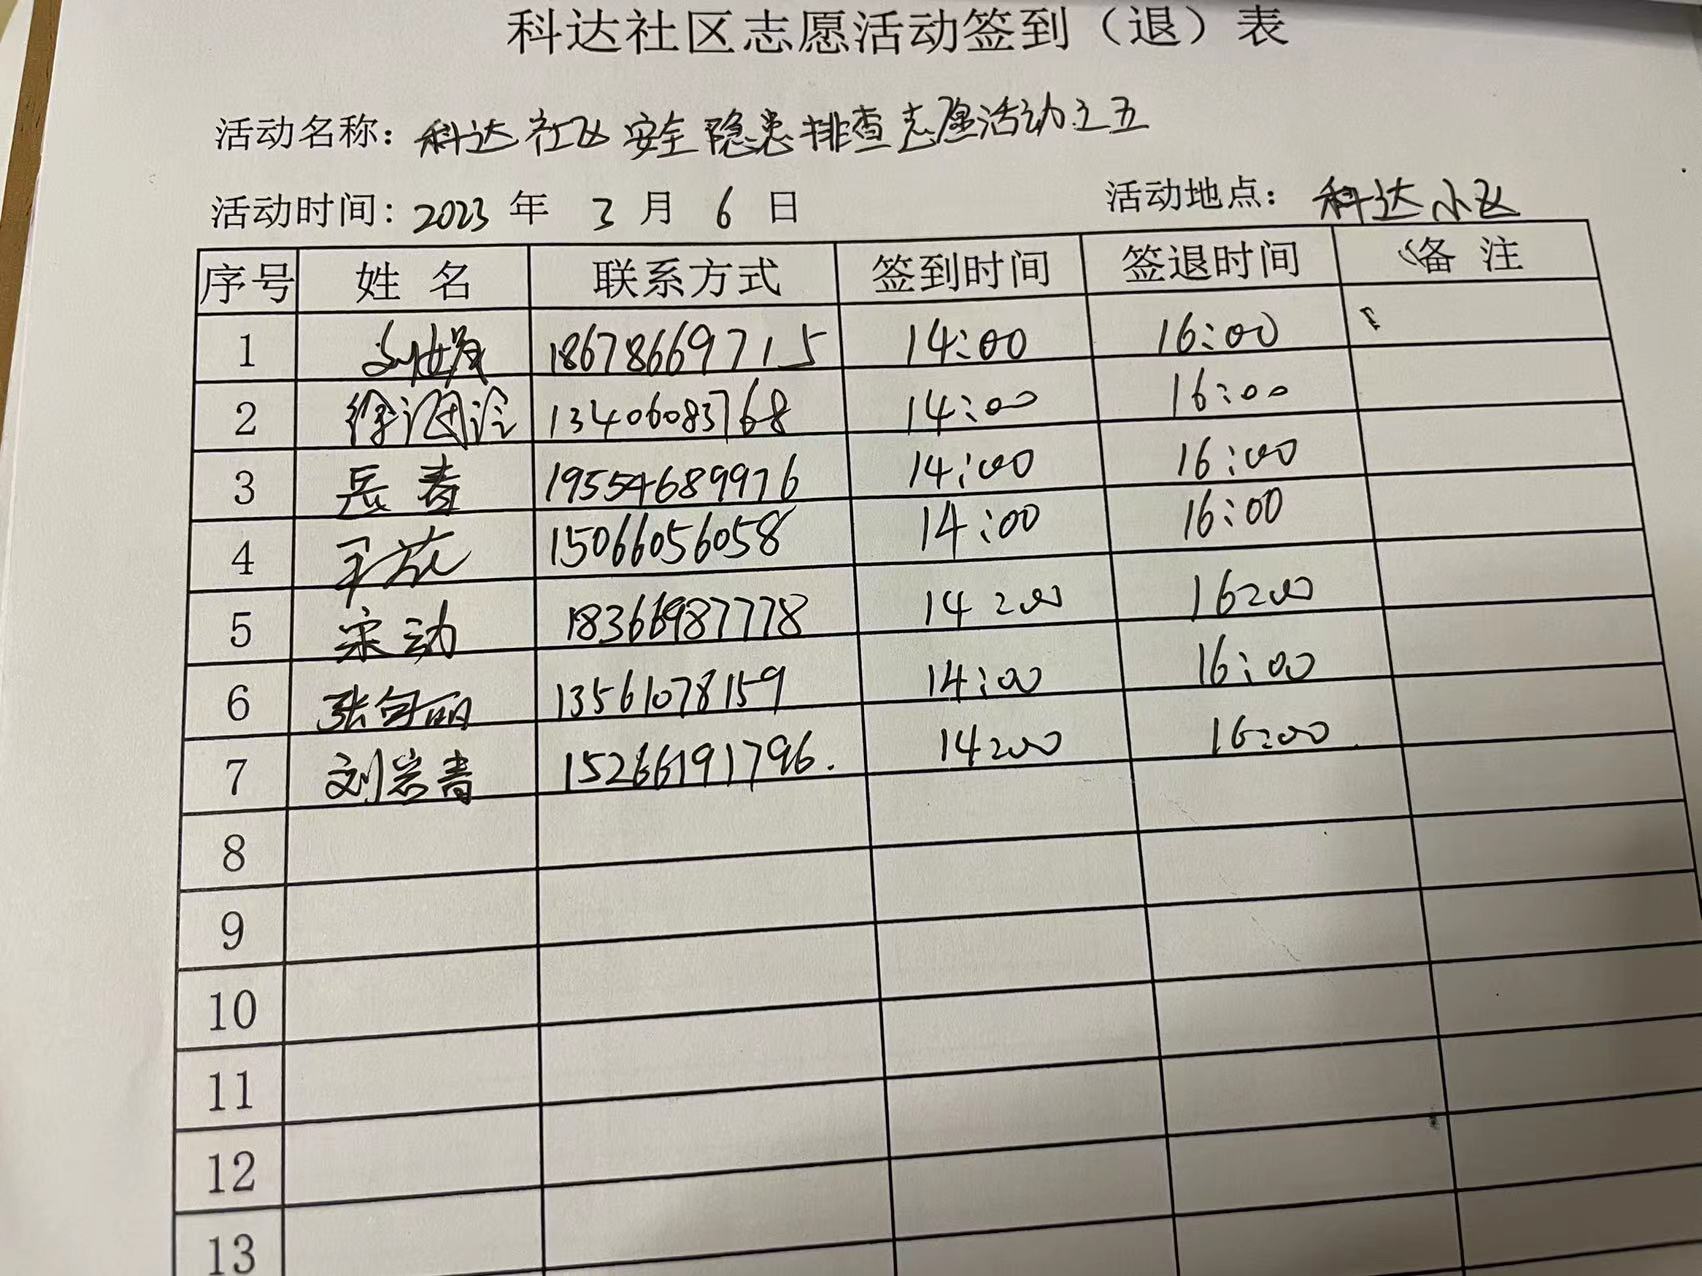 科达社区志愿活动签到（退）表
活动名称：科达社区安全隐患排查志愿活动之五
活动时间：2023 年 3 月 6 日 活动地点：科达小区
序号 姓名 联系方式 签到时间 签退时间 备注
1 18678669715 14:00 16:00
2 13406083768 14:00 16:00
3 岳春 19554689976 14:00 16:00
4 15066056058 14:00 16:00
5 宋动 18366987778 14:00 16:00
6 13561078159 14:00 16:00
7 刘岩青 15266191796. 14:00 16:00
8
9
10
11
12
13